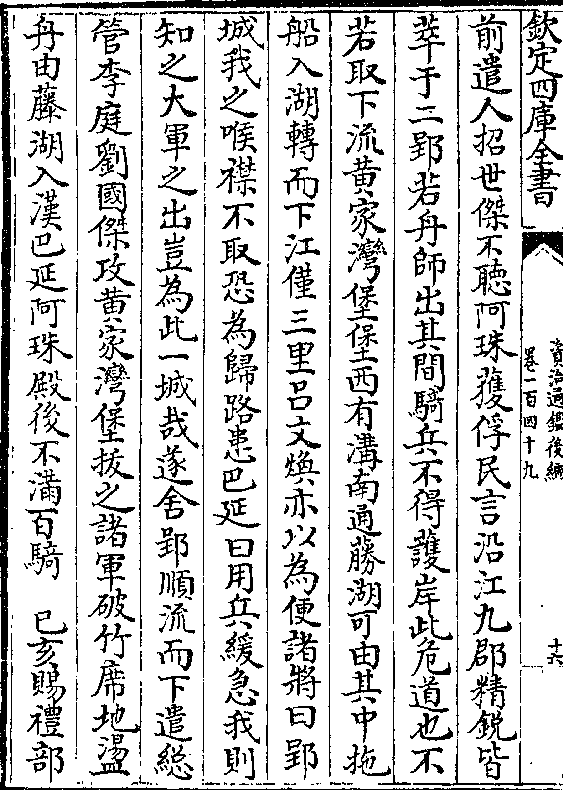 欽定四庫全書
資治通鑑後編
卷一百四十九
十六
前遣人招世傑不聽阿珠獲俘民言沿江九郡精鋭皆
萃于二郢若舟師出其間騎兵不得䕶岸此危道也不
若取下流黄家灣堡堡西有溝南通藤湖可由其中拖
船入湖轉而下江僅三里吕文煥亦以為便諸將曰郢
城我之喉襟不取恐為歸路患巴延曰用兵緩急我則
知之大軍之出豈為此一城哉遂舍郢順流而下遣総
管李庭劉國傑攻黄家灣堡拔之諸軍破竹席地盪
舟由藤湖入漢巴延阿珠殿後不滿百騎　己亥賜禮部